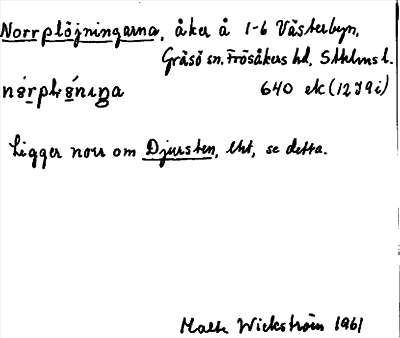 Norrplöjningarna, åker å 1-6 Västerbyn,
Gräsö sn. Frösåkers hd, Sthlms l.
640 ek (12 J 9 i)
Ligger norr om Djursten, lht, se detta.
Malte Wickström 1961